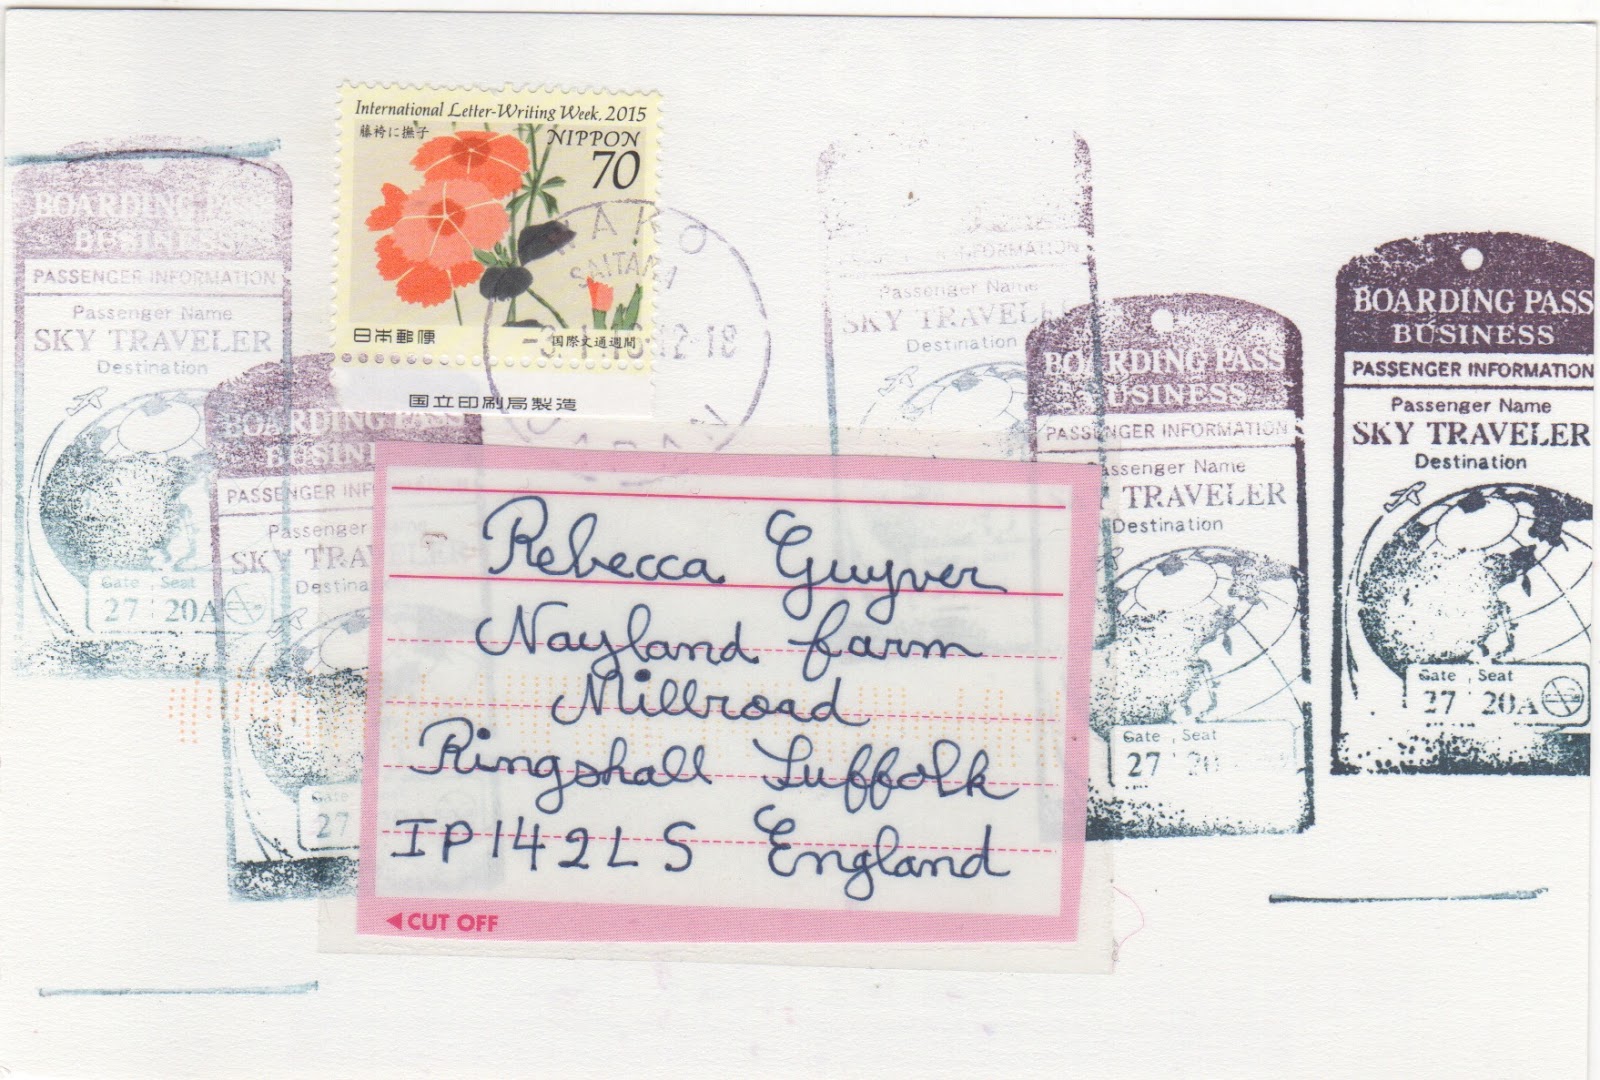 International Letter-Writing Week, 2015
藤袴に撫子
NIPPON
70
日本郵便
国際文通週間
国立印刷局製造
SAITAMA
BOARDING PASS
BUSINESS
PASSENGER INFORMATION
Passenger Name
SKY TRAVELER
Destination
Gate Seat
27 20A
BOARDING PASS
BUSIN
PASSENGER INF
Passenger
SKY TRAVELER
Destina
Gate
27
PASSENGER INFORMATION
Passenger Name
SKY TRAVELER
Destination
BOARDING PASS
BUSINESS
PASSENGER INFORMATION
Passenger Name
TRAVELER
Destination
Gate Seat
27 20
BOARDING PASS
BUSINESS
PASSENGER INFORMATION
Passenger Name
SKY TRAVELER
Destination
Gate Seat
27 20A
Rebecca Guyver
Nayland farm
Millroad
Ringshall Suffolk
IP142LS England
CUT OFF